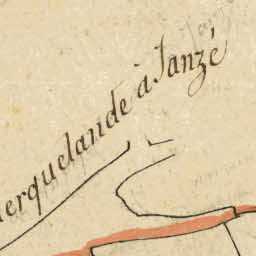 erquelande à Janzé